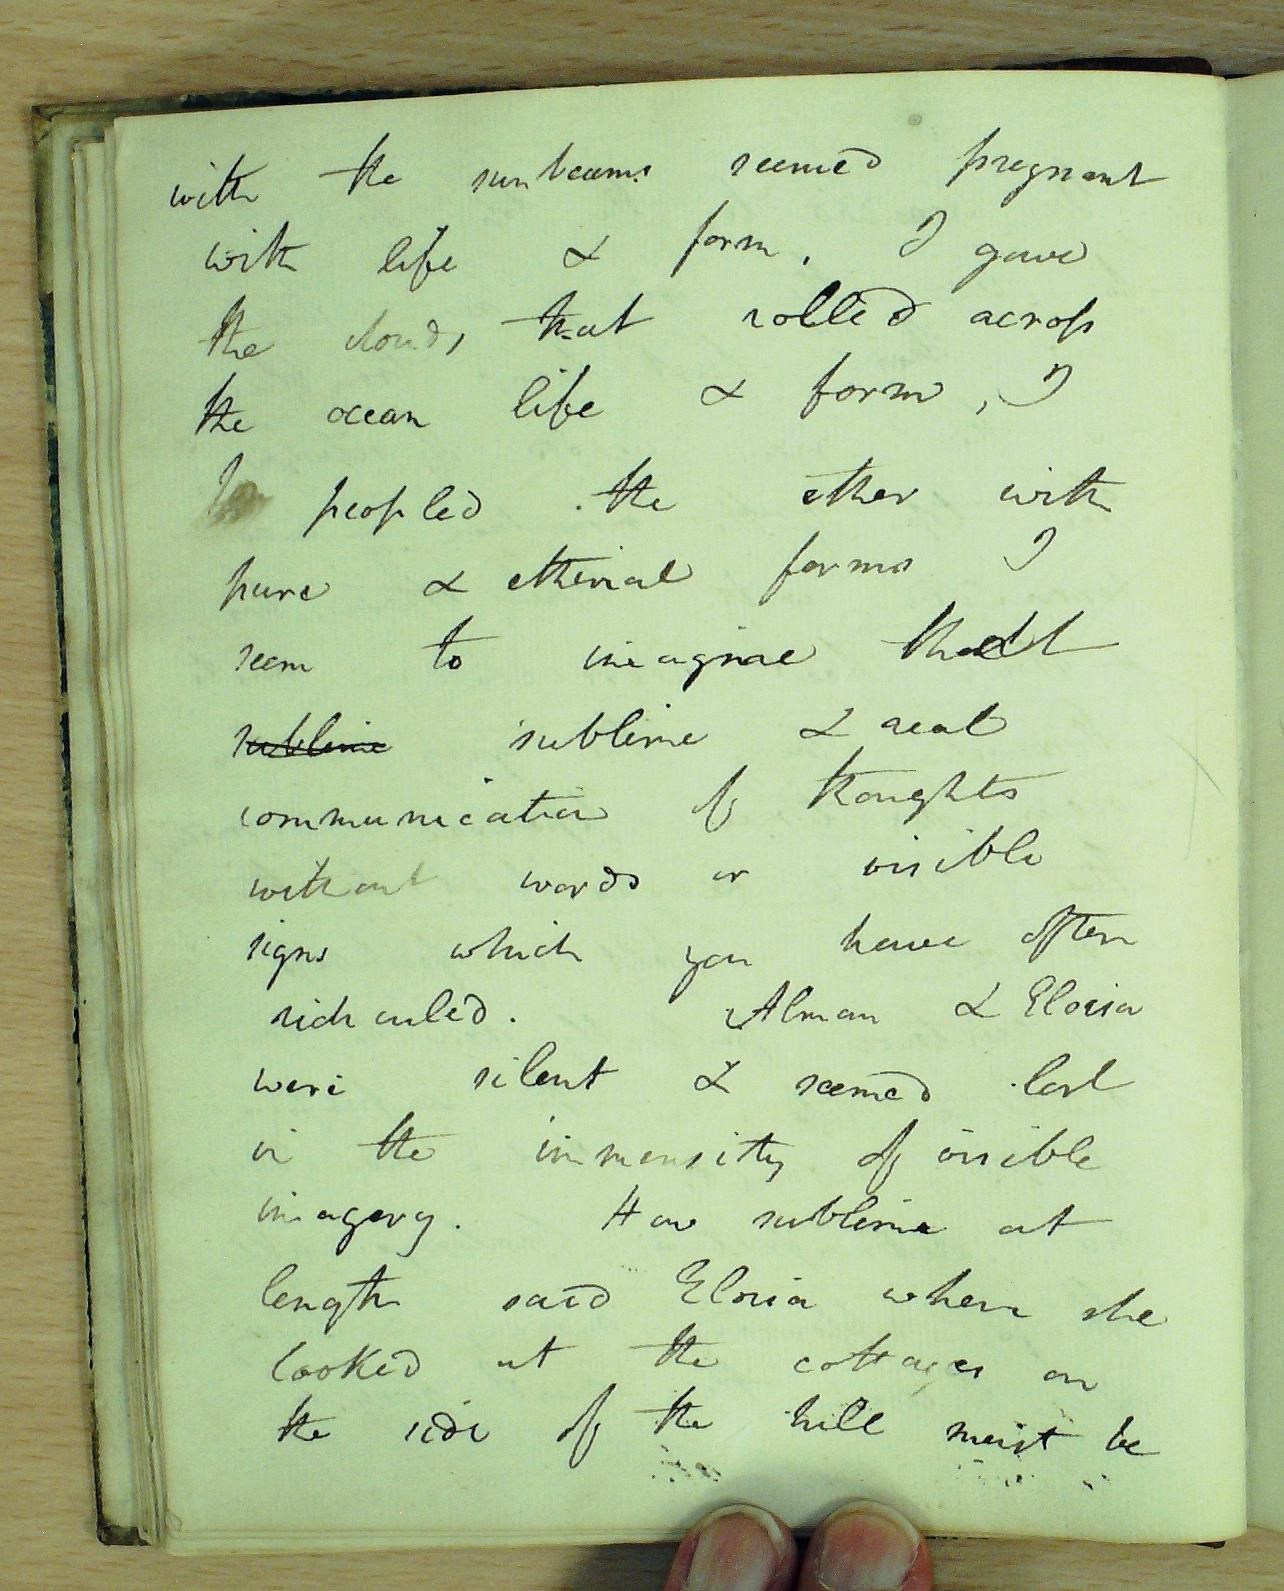 with the sunbeams seemed pregnant
with life & form. I gave
the clouds that rolled across
the ocean life & form, I
peopled the ether with
pure & etherial forms I
seem to imagine that
sublime sublime & real
communication of thoughts
without words or visible
signs which you have often
ridiculed. Alman & Eloisa
were silent & seemed lost
in the immensity of visible
imagery. How sublime at
length said Eloisa when she
looked at the cottages on
the side of the hill must be